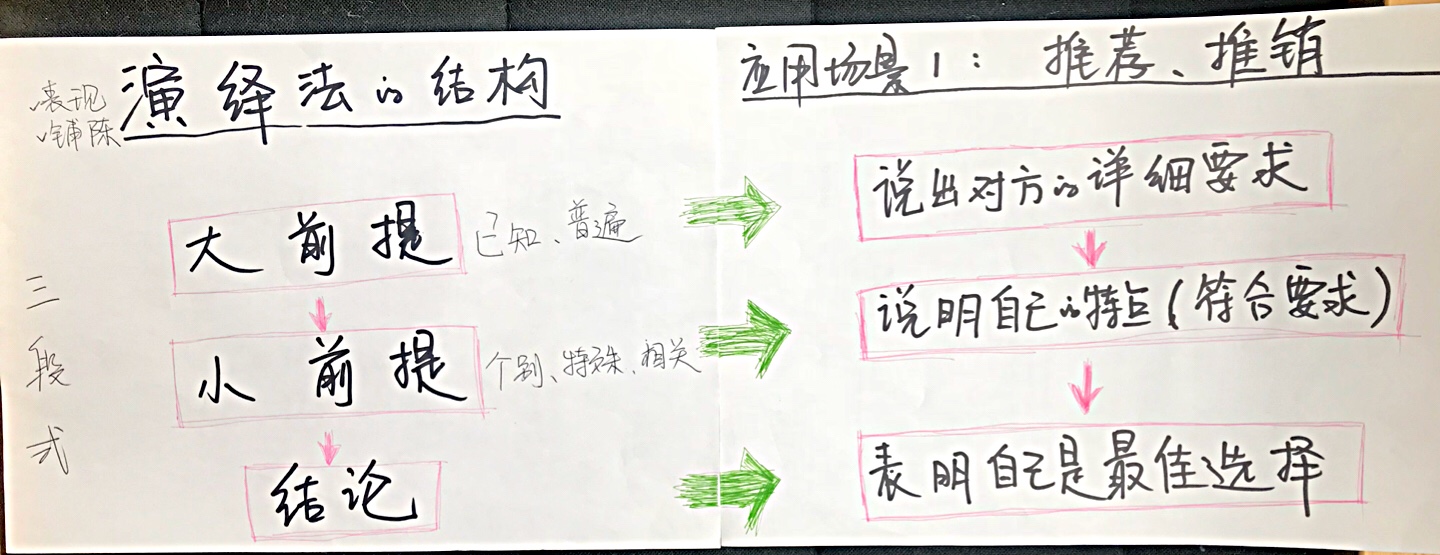 表现
铺陈
演绎法的结构
三段式
大前提
已知、普遍
小前提
个别、特殊、相关
结论
应用场景1：推荐、推销
说出对方的详细要求
说明自己的特点(符合要求)
表明自己是最佳选择